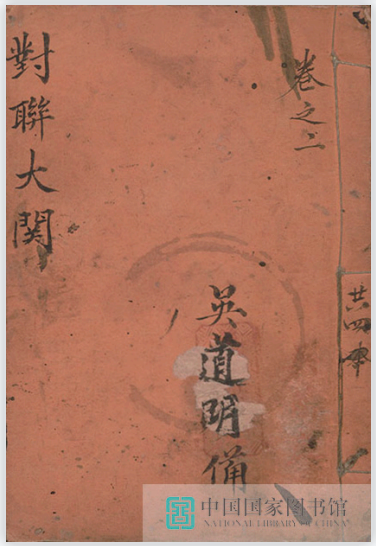 卷之二
廿四本
對聯大関
吳道明備
中国国家图书馆
NATIONAL LIBRARY OF CHINA